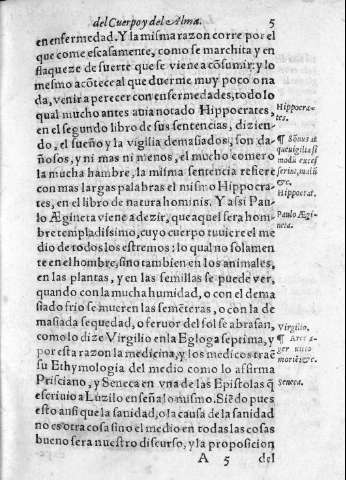 del Cuerpo y del Alma. 5
en enfermedad. Y la misma razon corre por el
que come escasamente, como se marchita y en
flaqueze de suerte que se viene a cõsumir: y lo
mesmo acõtece al que duerme muy poco o na
da, venir a perecer con enfermedades, todo lo
qual mucho antes auia notado Hippocrates,
en el segundo libro de sus sentencias, dizien-
do, el sueño y la vigilia demasiados, son da-
ñosos, y ni mas ni menos, el mucho comer o
la mucha hambre, la misma sentencia refiere
con mas largas palabras el mismo Hippocra-
tes, en el libro de natura hominis. Y assi Pau-
lo Ægineta viene a dezir, que aquel sera hom-
bre templadissimo, cuyo cuerpo tuuiere el me
dio de todos los estremos: lo qual no solamen
te en el hombre, sino tambien en los animales,
en las plantas, y en las semillas se puede ver,
quando con la mucha humidad, o con el dema
siado frio se mueren las semẽteras, o con la de
masiada sequedad, o feruor del sol se abrasan,
como lo dize Virgilio en la Egloga septima, y
por esta razon la medicina, y los medicos traẽ
su Ethymologia del medio como lo affirma
Prisciano, y Seneca en vna de las Epistolas q̃
escriuio a Luzilo enseña lo mismo. Siẽdo pues
esto ansi que la sanidad, o la causa de la sanidad
no es otra cosa sino el medio en todas las cosas
bueno sera nuestro discurso, y la proposicion
A 5 del
Hippocra-
tes.
¶ Sõnus at
que vigilia si
modũ exces
serint, malũ
&c.
Hippocrat.
Paulo Ægi-
neta.
Virgilio.
¶ Aret a-
ger vitio
moriẽs &c.
Seneca.